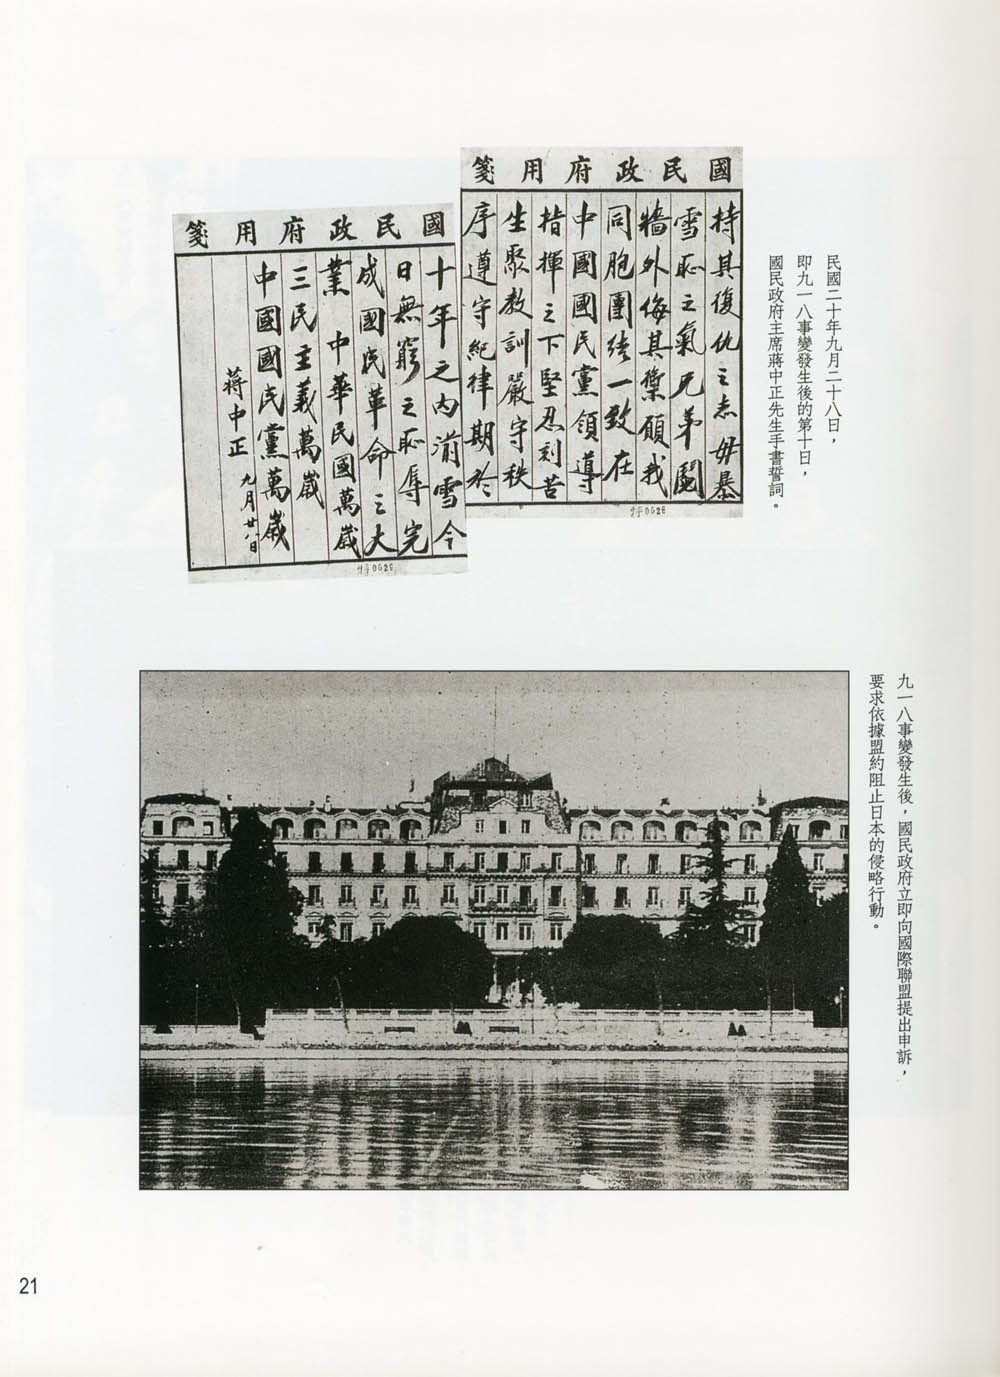 國民政府用箋
持其復仇之志毋暴
雪恥之氣兄弟鬩
牆外侮其禦願我
同胞團結一致在
中國國民黨領導
指揮之下堅忍刻苦
生聚教訓嚴守秩
序遵守紀律期於
國民政府用箋
十年之內湔雪今
日無窮之恥辱完
成國民革命之大
業 中華民國萬歲
三民主義萬歲
中國國民黨萬歲
蔣中正 九月廿八日
民國二十年九月二十八日，
即九一八事變發生後的第十日，
國民政府主席蔣中正先生手書誓詞。
九一八事變發生後，國民政府立即向國際聯盟提出申訴，
要求依據盟約阻止日本的侵略行動。
21